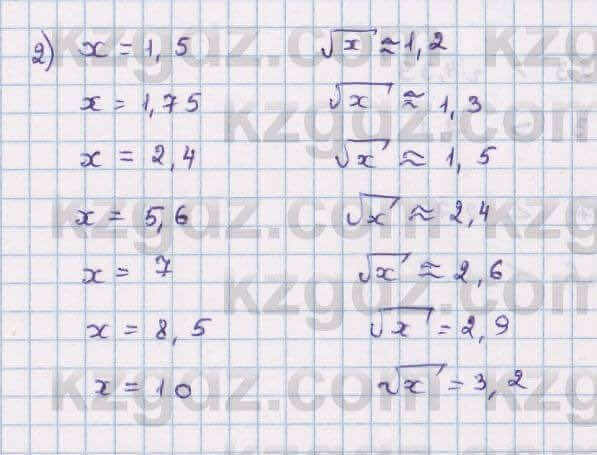 2) x = 1,5 √x ≈ 1,2
x = 1,75 √x ≈ 1,3
x = 2,4 √x ≈ 1,5
x = 5,6 √x ≈ 2,4
x = 7 √x ≈ 2,6
x = 8,5 √x = 2,9
x = 10 √x = 3,2
kzgdz.com
kzgdz.com
kzgdz.com
kzgdz.com
kzgdz.com